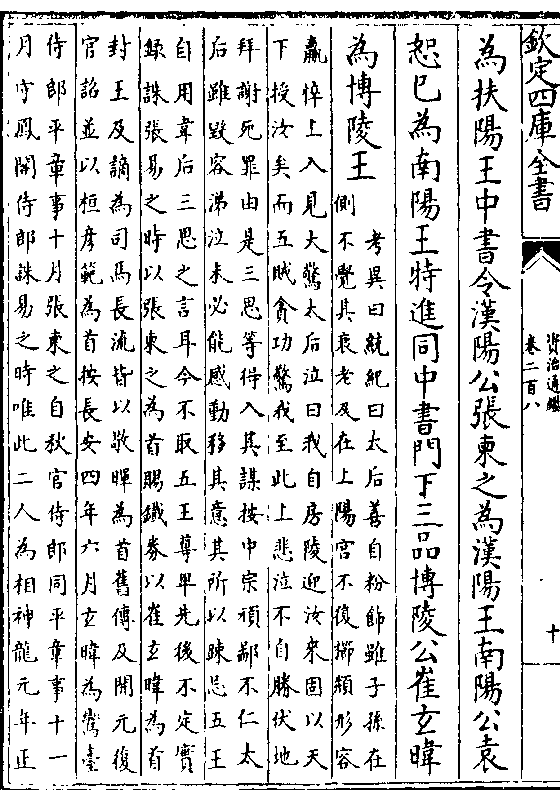 欽定四庫全書
資治通鑑
卷二百八
十
為扶陽王中書令漢陽公張柬之為漢陽王南陽公袁
恕己為南陽王特進同中書門下三品博陵公崔玄暐
為博陵王
考異曰統紀曰太后善自粉飾雖子孫在
側不覺其衰老及在上陽宮不復櫛頮形容
羸悴上入見大驚太后泣曰我自房陵迎汝來固以天
下授汝矣而五賊貪功驚我至此上悲泣不自勝伏地
拜謝死罪由是三思等得入其謀按中宗頑鄙不仁太
后雖毀容涕泣未必能感動移其意其所以疎忌五王
自用韋后三思之言耳今不取五王尊卑先後不定實
録誅張易之時以張柬之為首賜鐵券以崔玄暐為首
封王及謫為司馬長流皆以敬暉為首舊傳及開元復
官詔並以桓彦範為首按長安四年六月玄暐為鸞臺
侍郎平章事十月張柬之自秋官侍郎同平章事十一
月守鳳閣侍郎誅易之時唯此二人為相神龍元年正